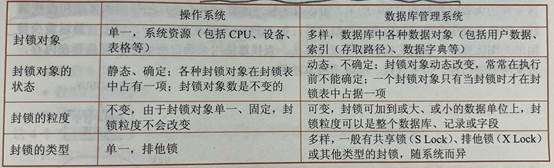 操作系统
数据库管理系统
封锁对象
单一，系统资源（包括 CPU、设备、
表格等）
多样，数据库中各种数据对象（包括用户数据、
索引（存取路径）、数据字典等）
封锁对象的
状态
静态、确定；各种封锁对象在封锁表
中占有一项；封锁对象数是不变的
动态，不确定；封锁对象动态改变，常常在执行
前不能确定；一个封锁对象只有当封锁时才在封
锁表中占据一项
封锁的粒度
不变，由于封锁对象单一、固定，封
锁粒度不会改变
可变，封锁可加到或大、或小的数据单位上，封
锁粒度可以是整个数据库、记录或字段
封锁的类型
单一，排他锁
多样，一般有共享锁（S Lock）、排他锁（X Lock）
或其他类型的封锁，随系统而异